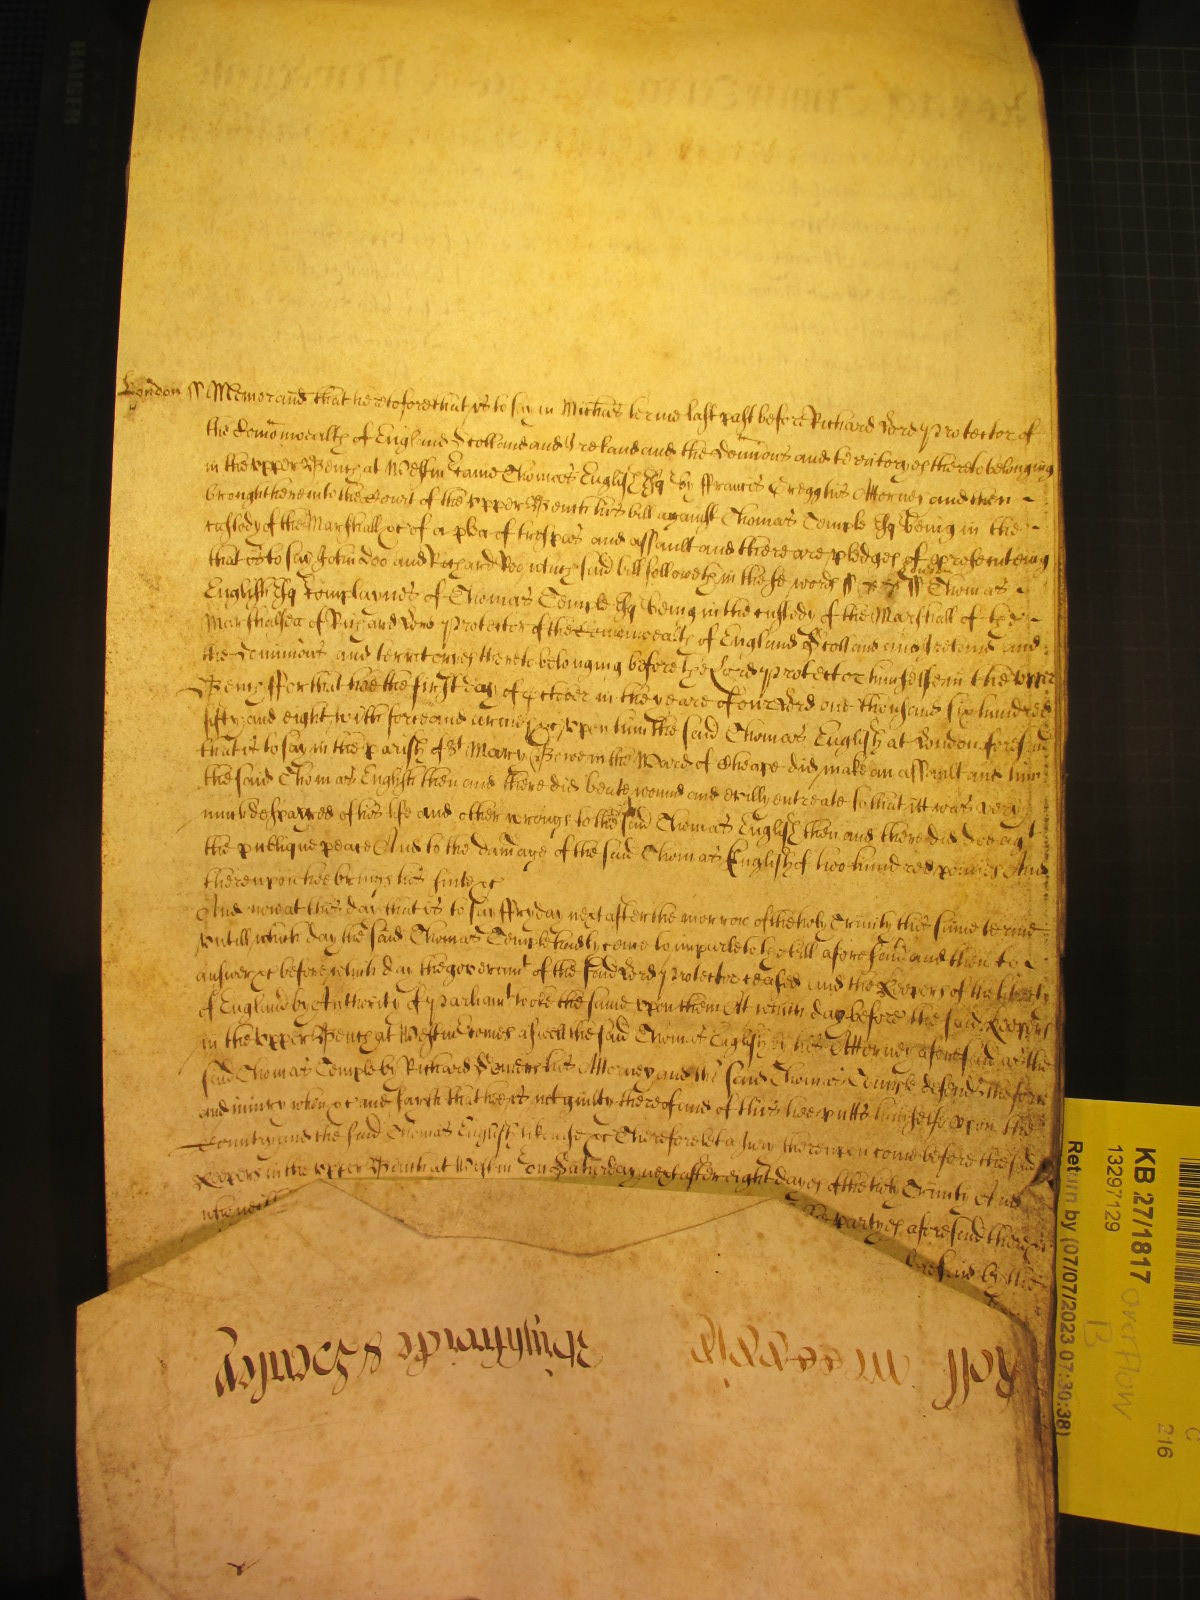 London ss Memorand that heretofore that is to say in Michas terme last past before Richard Lord Protector of
the Comonwealth of England Scotland and Ireland and the Dominions and territoryes thereto belonging
in the upper Bench at Westm came Thomas English Esq by Francis Gregg his Attorney and then
brought here into the Court of the upper Bench his bill against Thomas Temple Esq being in the
custody of the Marshall &c of a plea of trespas and assault and there are pledges of prosecuteing
that is to say John Doo and Richard Roo which said bill followeth in these words ss London ss Thomas
English Esq complaynes of Thomas Temple Esq being in the custody of the Marshall of the
Marshalsea of Richard Lord Protector of the Comonwealth of England Scotland and Ireland and
the Dominions and territoryes thereto belonging before the Lord Protector himselfe in the upper
Bench For that hee the first day of October in the yeare of our Lord one thousand six hundred
fifty and eight with force and armes &c upon him the said Thomas English at London foresaid
that is to say in the parish of St Mary Bowe in the Ward of Cheape did make an assault and him
the said Thomas English then and there did beate wound and evilly entreate so that itt was very
much despayred of his life and other wrongs to the said Thomas English then and there did doe agt
the publique peace And to the damage of the said Thomas English of two hundred pounds And
thereupon hee brings his suite &c
And now at this day that is to say Fryday next after the morrow of the holy Trinity this same terme
untill which day the said Thomas Temple had lycence to imparle to the bill aforesaid and then to
answer &c before which day the governmt of the said Lord Protector ceased and the Keepers of the liberty
of England by Authority of Parliamt tooke the same upon them At which day before the said Keepers
in the upper Bench at Westm comes aswell the said Thomas English by his Attorney aforesaid as the
said Thomas Temple by Richard Somers his Attorney and the said Thomas Temple defends the force
and iniury when &c and sayth that hee is not guilty thereof and of this hee putts himselfe upon the
Country and the said Thomas English likewise &c Therefore let a Jury thereupon come before the said
Keepers in the upper Bench at Westm on Saturday next after eight dayes of the holy Trinity And
who neith
partyes aforesaid there
foresaid by the
Roll